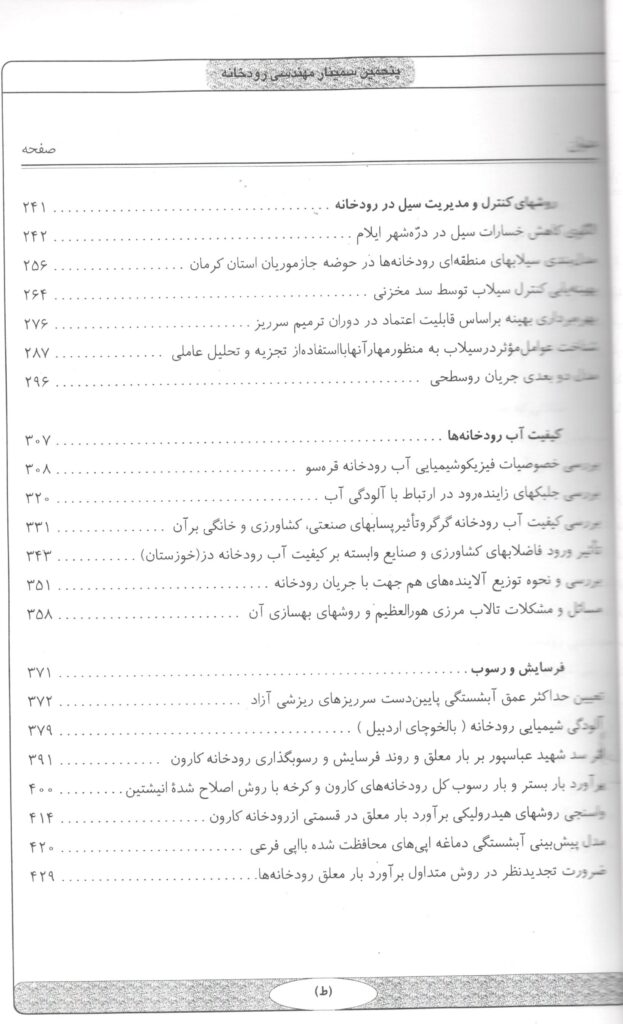 پنجمین سمینار مهندسی رودخانه
عنوان صفحه
روشهای کنترل و مدیریت سیل در رودخانه ........ ۲۴۱
الگوی کاهش خسارات سیل در درّه‌شهر ایلام ........ ۲۴۲
مدل‌بندی سیلابهای منطقه‌ای رودخانه‌ها در حوضه جازموریان استان کرمان ........ ۲۵۶
بهینه‌یابی کنترل سیلاب توسط سد مخزنی ........ ۲۶۴
بهره‌برداری بهینه براساس قابلیت اعتماد در دوران ترمیم سرریز ........ ۲۷۶
شناخت عوامل‌مؤثردرسیلاب به منظورمهارآنهابااستفاده‌از تجزیه و تحلیل عاملی ........ ۲۸۷
مدل دو بعدی جریان روسطحی ........ ۲۹۶
کیفیت آب رودخانه‌ها ........ ۳۰۷
بررسی خصوصیات فیزیکوشیمیایی آب رودخانه قره‌سو ........ ۳۰۸
بررسی جلبکهای زاینده‌رود در ارتباط با آلودگی آب ........ ۳۲۰
بررسی کیفیت آب رودخانه گرگروتأثیرپسابهای صنعتی، کشاورزی و خانگی برآن ........ ۳۳۱
تأثیر ورود فاضلابهای کشاورزی و صنایع وابسته بر کیفیت آب رودخانه دز(خوزستان) ........ ۳۴۳
بررسی و نحوه توزیع آلاینده‌های هم جهت با جریان رودخانه ........ ۳۵۱
مسائل و مشکلات تالاب مرزی هورالعظیم و روشهای بهسازی آن ........ ۳۵۸
فرسایش و رسوب ........ ۳۷۱
تعیین حداکثر عمق آبشستگی پایین‌دست سرریزهای ریزشی آزاد ........ ۳۷۲
آلودگی شیمیایی رودخانه ( بالخوچای اردبیل ) ........ ۳۷۹
اثر سد شهید عباسپور بر بار معلق و روند فرسایش و رسوبگذاری رودخانه کارون ........ ۳۹۱
برآورد بار بستر و بار رسوب کل رودخانه‌های کارون و کرخه با روش اصلاح شدهٔ انیشتین ........ ۴۰۰
واسنجی روشهای هیدرولیکی برآورد بار معلق در قسمتی ازرودخانه کارون ........ ۴۱۴
مدل پیش‌بینی آبشستگی دماغه اپی‌های محافظت شده بااپی فرعی ........ ۴۲۰
ضرورت تجدیدنظر در روش متداول برآورد بار معلق رودخانه‌ها ........ ۴۲۹
(ط)